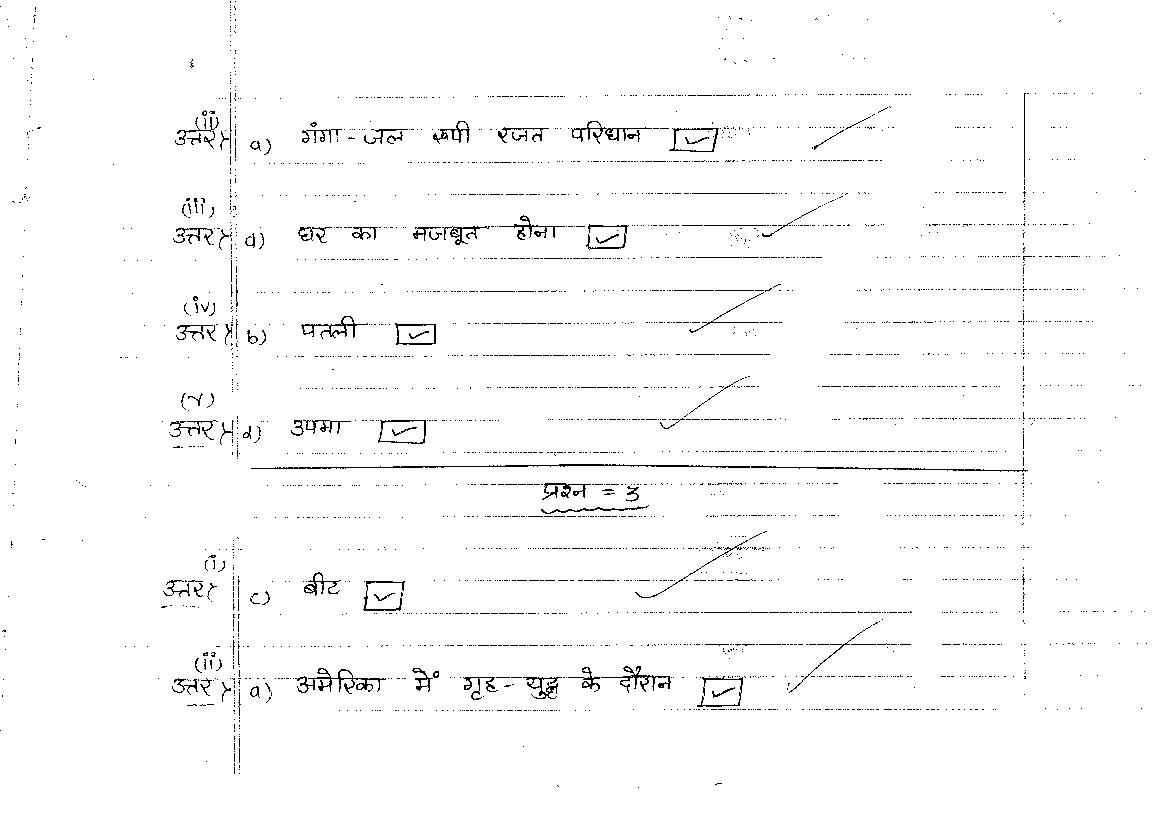 (ii)
उत्तर> a) गंगा-जल रूपी रजत परिधान ✓
(iii)
उत्तर> d) घर का मजबूत होना ✓
(iv)
उत्तर> b) पतली ✓
(v)
उत्तर> d) उपमा ✓
प्रश्न = 3
(i)
उत्तर> c) बीट ✓
(ii)
उत्तर> a) अमेरिका में गृह-युद्ध के दौरान ✓